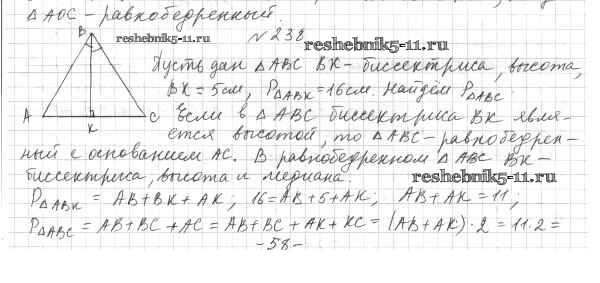 △АОС – равнобедренный.
№238
reshebnik5-11.ru
reshebnik5-11.ru
B
Пусть дан △ABC BK – биссектриса, высота,
BK = 5см, P△ABK = 16см. Найдем P△ABC
Если в △ABC биссектриса BK явля-
A K C
ется высотой, то △ABC – равнобедрен-
ный с основанием AC. В равнобедренном △ABC BK –
биссектриса, высота и медиана.
reshebnik5-11.ru
P△ABK = AB+BK+AK, 16=AB+5+AK; AB+AK=11,
P△ABC = AB+BC+AC = AB+BC+AK+KC = (AB+AK)·2 = 11·2=
-58-